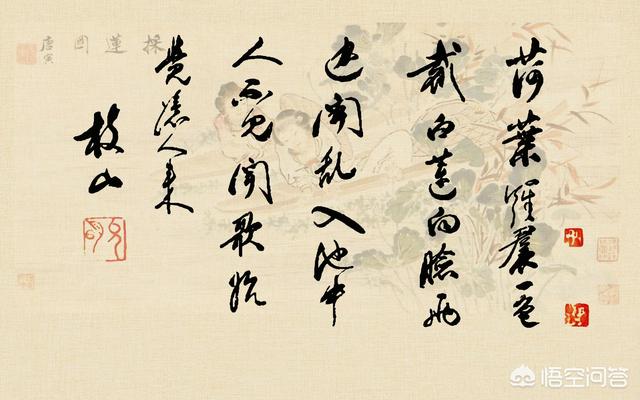 荷葉羅裙一色
裁白蓮向臉兩
邊開亂入池中
人不見聞歌始
覺人来
枝山
採蓮圖
唐寅
悟空问答